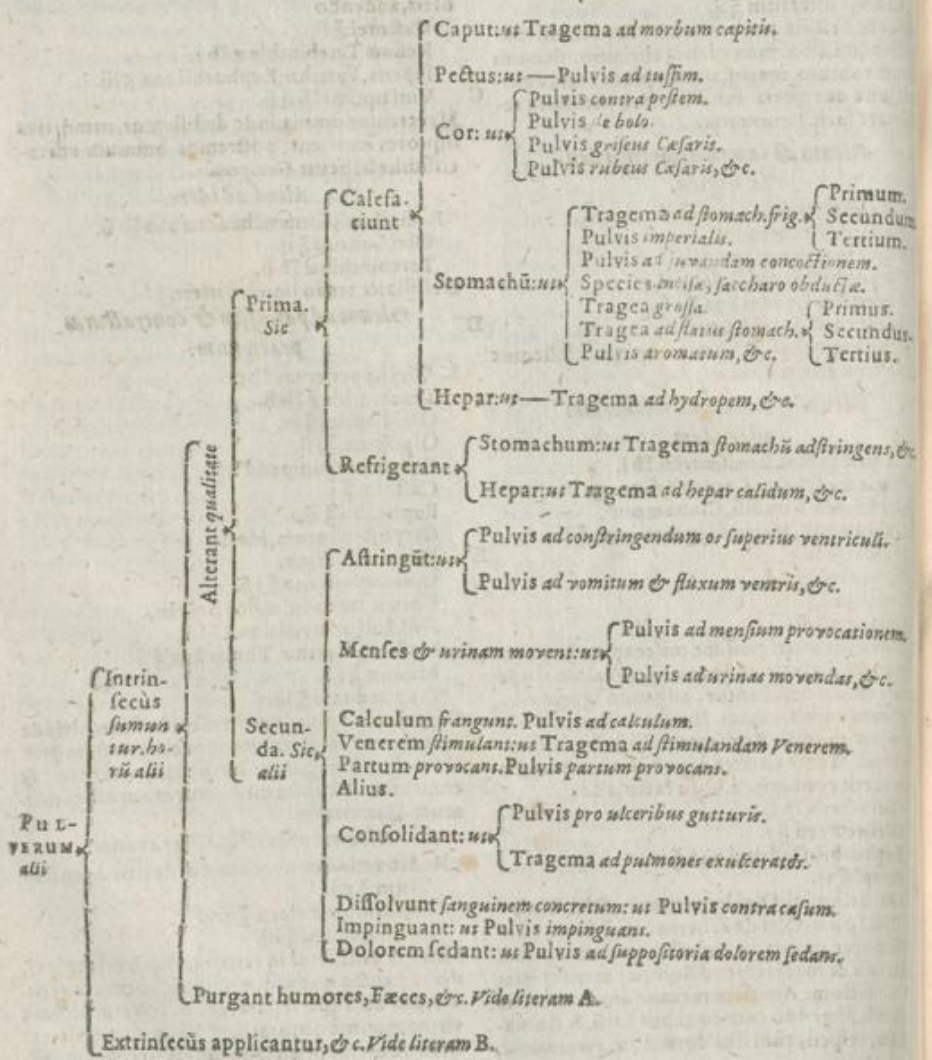 Caput: ut Tragema ad morbum capitis.
Pectus: ut — Pulvis ad tussim.
Cor: ut
Pulvis contra pestem.
Pulvis de bolo.
Pulvis griseus Cæsaris.
Pulvis rubeus Cæsaris, &c.
Calefa-
ciunt
Stomachū: ut
Tragema ad stomach. frig.
Primum.
Secundum
Tertium.
Pulvis imperialis.
Pulvis ad juvandam concoctionem.
Species incisæ, saccharo obductæ.
Tragea grossa.
Tragea ad flatus stomach.
Primus.
Secundus.
Tertius.
Pulvis aromatum, &c.
Hepar: ut — Tragema ad hydropem, &c.
Prima.
Sic
Refrigerant
Stomachum: ut Tragema stomachū adstringens, &c
Hepar: ut Tragema ad hepar calidum, &c.
Alterant qualitate
Astringūt: ut
Pulvis ad constringendum os superius ventriculi.
Pulvis ad vomitum & fluxum ventris, &c.
Menses & urinam movent: ut
Pulvis ad mensium provocationem.
Pulvis ad urinas movendas, &c.
Intrin-
secùs
sumun
tur. ho-
rū alii
Secun-
da. Sic
alii
Calculum frangunt. Pulvis ad calculum.
Venerem stimulant: ut Tragema ad stimulandam Venerem.
Partum provocans. Pulvis partum provocans.
Alius.
Consolidant: ut
Pulvis pro ulceribus gutturis.
Tragema ad pulmones exulceratos.
PUL-
VERUM
alii
Dissolvunt sanguinem concretum: ut Pulvis contra casum.
Impinguant: ut Pulvis impinguans.
Dolorem sedant: ut Pulvis ad suppositoria dolorem sedans.
Purgant humores, Fæces, &c. Vide literam A.
Extrinsecùs applicantur, & c. Vide literam B.